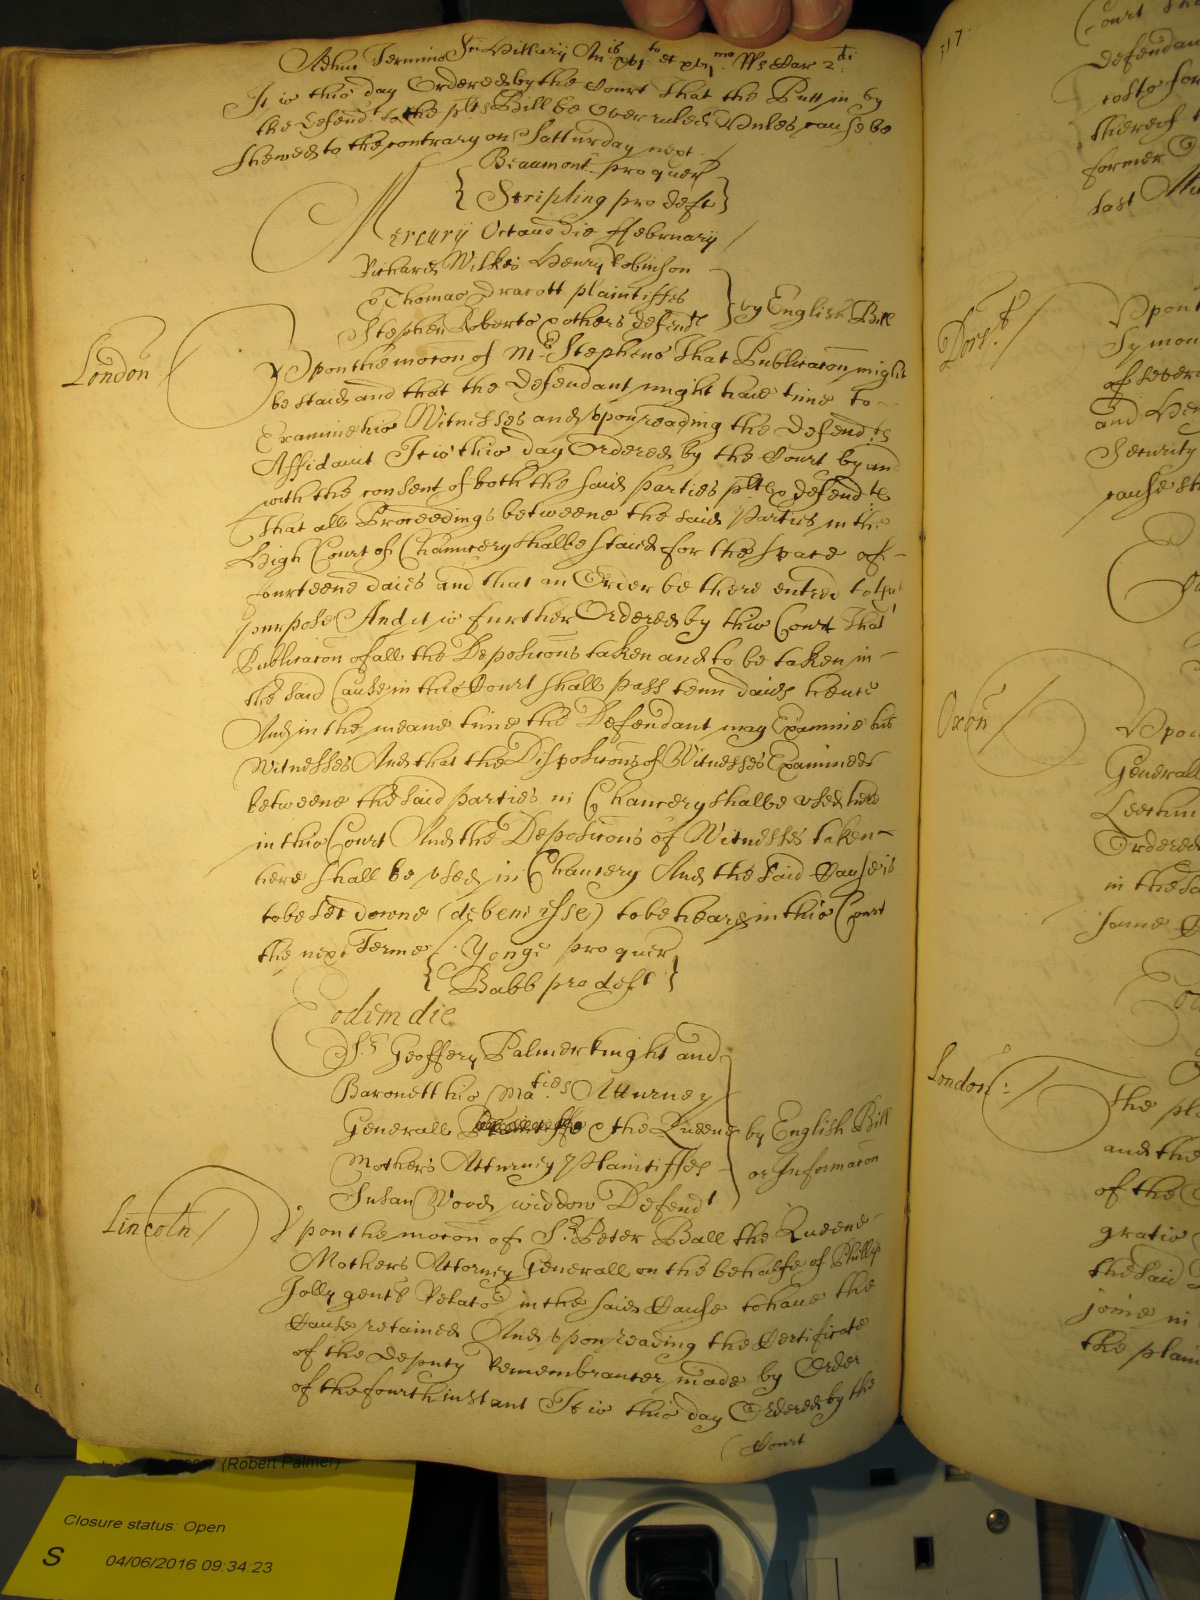 Adhuc Termino Sci Hillarij An.is xvj.to et xvij.mo RRs Car 2di
It is this day Ordered by the Court That the Putt in by
the defend.t to the plts Bill be Over ruled Unles cause be
shewed to the contrary on Satturday next
Beaumont pro quer
Stripling pro deft
Mercurij Octavo die ffebruarij
Richard Wilkes Henry Robinson
& Thomas Dracott plaintiffes
Stephen Roberts & others defend.ts
by English Bill
London
Upon the mocon of M.r Stephens That Publicacon might
be staid and that the Defendant might have time to
Examine his Witnesses and upon reading the defend.ts
Affidavit It is this day Ordered by the Court by and
with the consent of both the said parties plts & defend.ts
That all Proceedings betweene the said Parties in the
High Court of Chauncery shalbe staid for the space of
fourteene daies and that an Order be there entred to that
purpose And it is further Ordered by this Court That
Publicacon of all the Deposicons taken and to be taken in
the said Cause in this Court shall pass tenn daies hence
And in the meane time the Defendant may Examine his
Witnesses And that the Disposicons of Witnesses Examined
betweene the said parties in Chancery shalbe used here
in this Court And the Deposicons of Witnesses taken
here shall be used in Chancery And the said Cause is
to be set downe (de bene esse) to be heard in this Court
the next Terme
Yonge pro quer
Babb pro deft
Eodem die
S.r Geoffery Palmer knight and
Baronett his Ma.ties Atturney
Generall & the Queene
Mothers Atturney Plaintiffes
Susan Wood widdow Defend.t
by English Bill
or Informacon
Lincoln
Upon the mocon of S.r Peter Ball the Queene
Mothers Attorney Generall on the behalfe of Phillip
Jolly gent Relator in the said Cause to have the
Cause retained And upon reading the Certificate
of the Deputy Remembrancer made by Order
of the fourth instant It is this day Ordered by the
Court
317
Court
defendan
thereof
former
last
Dors.t
Upon
of sever
and He
Security
cause
Oxon
Upon
Generall
Ordered
in the sa
same
London
the pl
and the
of the
gratis
the said
joine in
the plain
(Robert Palmer)
Closure status: Open
S
04/06/2016 09:34:23